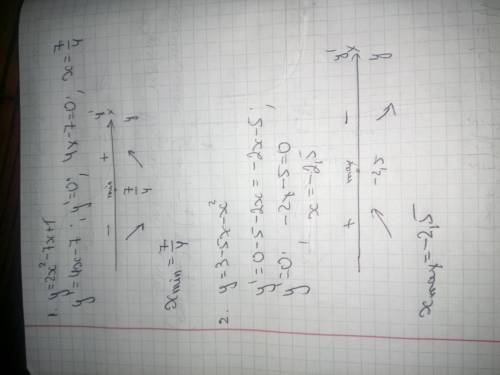 1. y=2x²-7x+1
y'=4x-7; y'=0; 4x-7=0; x=7/4
- min + y'
7/4 x
↘ ↗ y
x min = 7/4
2. y=3-5x-x²
y'=0-5-2x=-2x-5;
y'=0; -2x-5=0
x=-2,5
+ max - y'
-2,5 x
↗ ↘ y
x max = -2,5